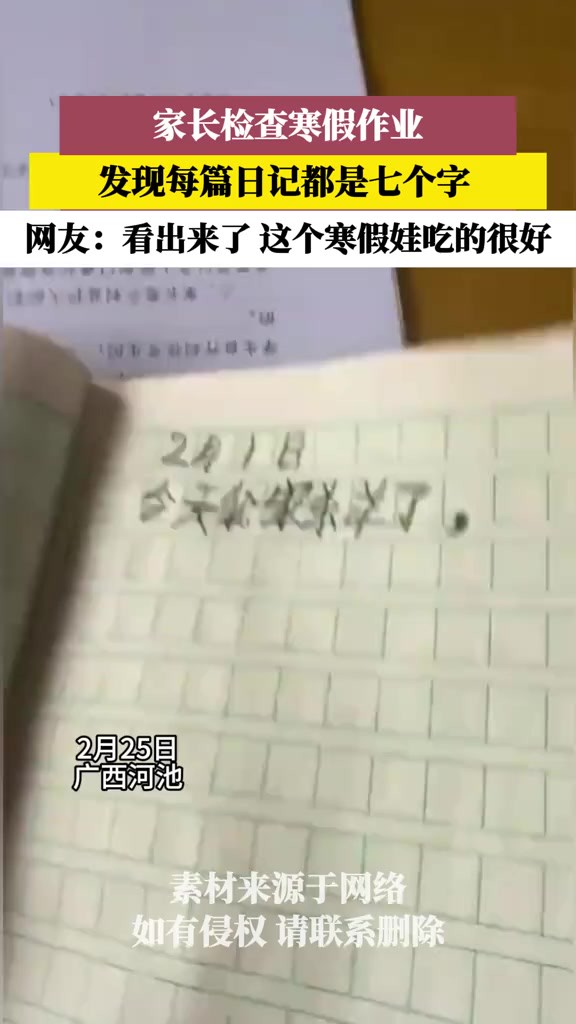 家长检查寒假作业
发现每篇日记都是七个字
网友：看出来了 这个寒假娃吃的很好
2月1日
今天我家杀羊了。
2月25日
广西河池
素材来源于网络
如有侵权 请联系删除